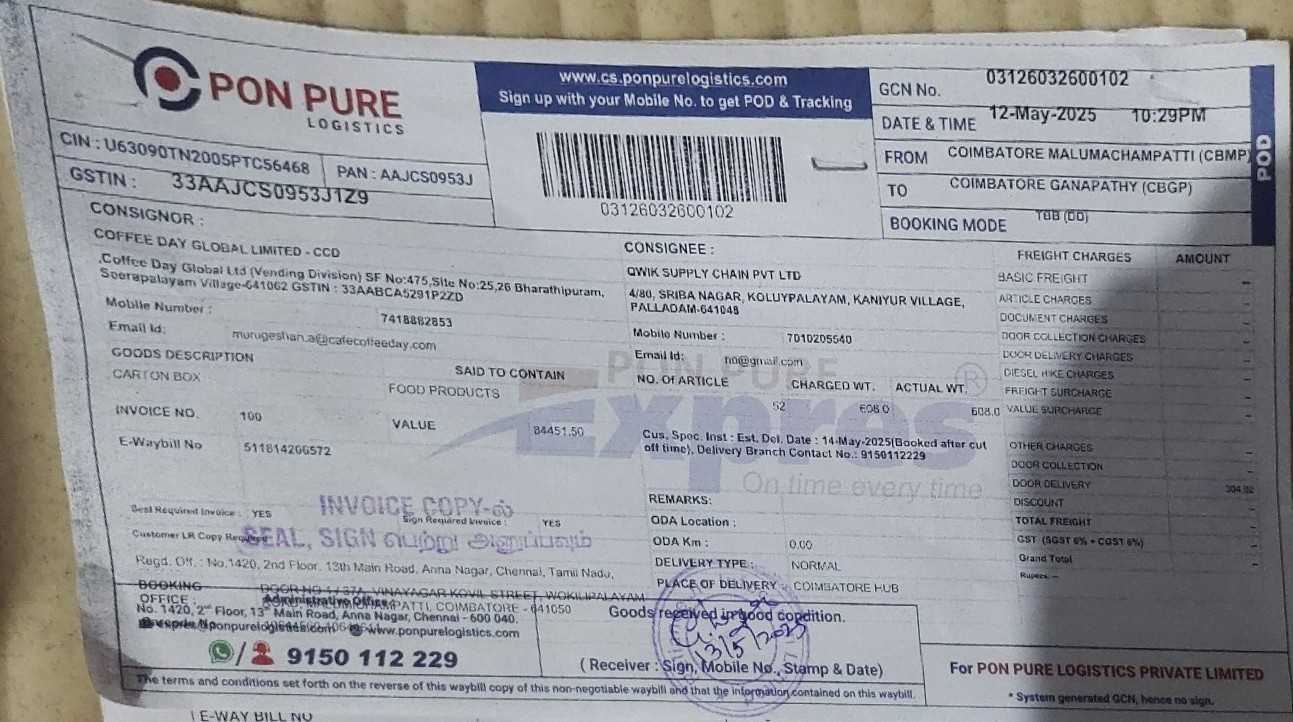 PON PURE
LOGISTICS
www.cs.ponpurelogistics.com
Sign up with your Mobile No. to get POD & Tracking
03126032600102
GCN No. 03126032600102
DATE & TIME 12-May-2025 10:29PM
FROM COIMBATORE MALUMACHAMPATTI (CBMP)
TO COIMBATORE GANAPATHY (CBGP)
BOOKING MODE TBB (DD)
POD
CIN : U63090TN2005PTC56468 PAN : AAJCS0953J
GSTIN : 33AAJCS0953J1Z9
CONSIGNOR :
COFFEE DAY GLOBAL LIMITED - CCD
,Coffee Day Global Ltd (Vending Division) SF No:475,Site No:25,26 Bharathipuram,
Seerapalayam Village-641062 GSTIN : 33AABCA5291P2ZD
Mobile Number : 7418882853
Email Id: murugeshan.a@cafecoffeeday.com
GOODS DESCRIPTION SAID TO CONTAIN
CARTON BOX FOOD PRODUCTS
INVOICE NO. 100 VALUE 84451.50
E-Waybill No 511814206572
CONSIGNEE :
QWIK SUPPLY CHAIN PVT LTD
4/80, SRIBA NAGAR, KOLUYPALAYAM, KANIYUR VILLAGE,
PALLADAM-641048
Mobile Number : 7010205540
Email Id: no@gmail.com
NO. Of ARTICLE CHARGED WT. ACTUAL WT.
52 608.0 608.0
Cus. Spec. Inst : Est. Del. Date : 14-May-2025(Booked after cut
off time), Delivery Branch Contact No.: 9150112229
PON PURE
Expres
®
On time every time
FREIGHT CHARGES AMOUNT
BASIC FREIGHT -
ARTICLE CHARGES -
DOCUMENT CHARGES -
DOOR COLLECTION CHARGES -
DOOR DELIVERY CHARGES -
DIESEL HIKE CHARGES -
FREIGHT SURCHARGE -
VALUE SURCHARGE -
OTHER CHARGES -
DOOR COLLECTION -
DOOR DELIVERY
DISCOUNT -
TOTAL FREIGHT -
GST (SGST 6% + CGST 6%) -
Grand Total -
Rupees. --
REMARKS:
ODA Location :
ODA Km : 0.00
DELIVERY TYPE : NORMAL
PLACE OF DELIVERY : COIMBATORE HUB
Seal Required Invoice : YES Sign Required Invoice : YES
Customer LR Copy Required
INVOICE COPY-ல்
SEAL, SIGN பெற்று அனுப்பவும்
Regd. Off. : No.1420, 2nd Floor, 13th Main Road, Anna Nagar, Chennai, Tamil Nadu,
BOOKING OFFICE : VINAYAGAR KOVIL STREET, WOKILIPALAYAM
COIMBATORE - 641050
Administrative Office :
No. 1420, 2nd Floor, 13th Main Road, Anna Nagar, Chennai - 600 040.
www.ponpurelogistics.com
9150 112 229
Goods received in good condition.
13/5/2025
( Receiver : Sign, Mobile No., Stamp & Date)
For PON PURE LOGISTICS PRIVATE LIMITED
* System generated GCN, hence no sign.
The terms and conditions set forth on the reverse of this waybill copy of this non-negotiable waybill and that the information contained on this waybill.
E-WAY BILL NO